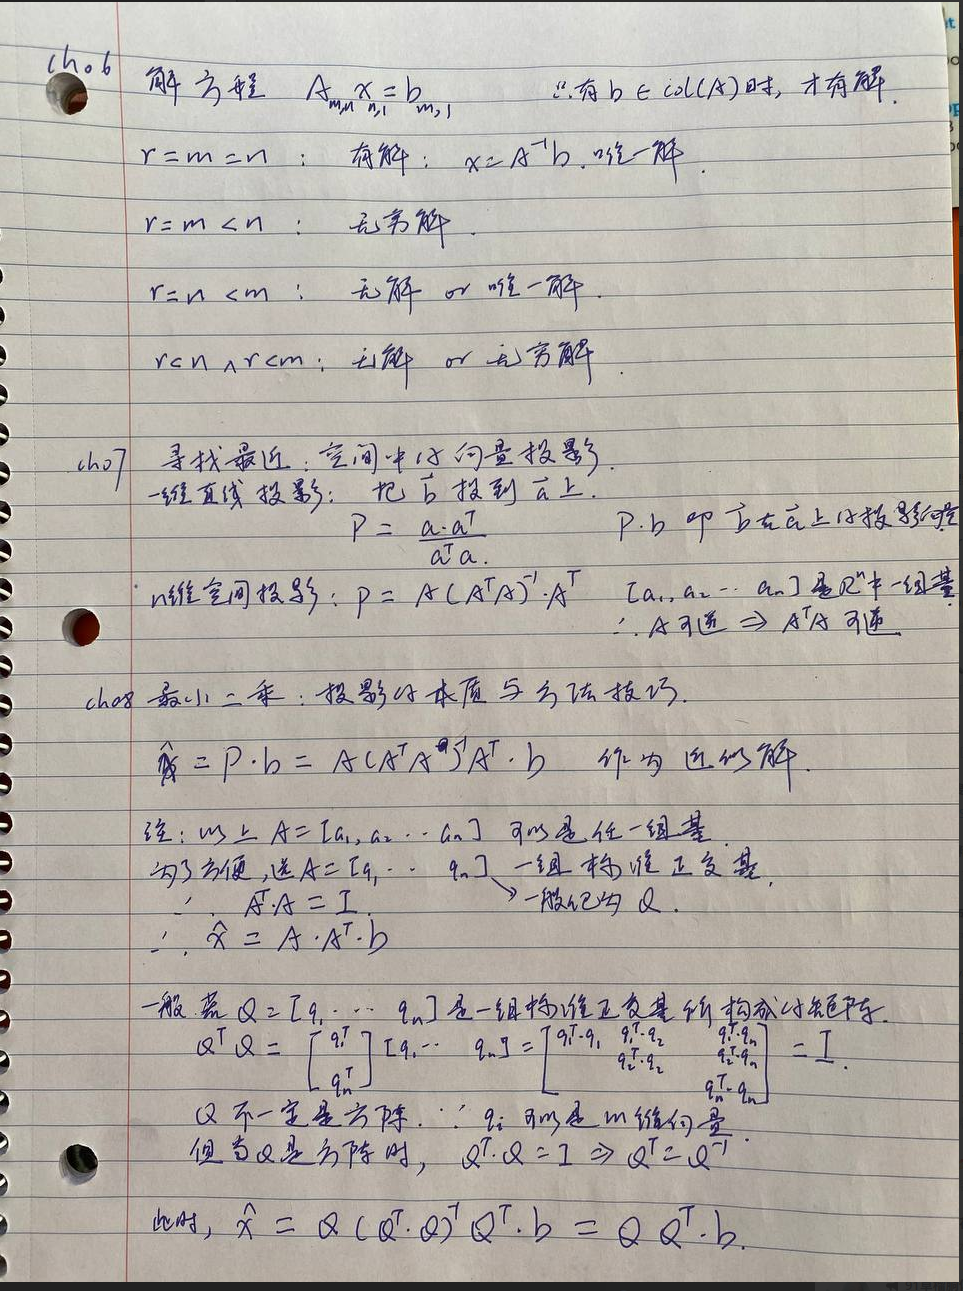 ch06
解方程 A_{m,n} x_{n,1} = b_{m,1} ∴有b ∈ col(A)时, 才有解.
r=m=n : 有解: x=A⁻¹b. 唯一解.
r=m<n : 无穷解.
r=n<m : 无解 or 唯一解.
r<n ∧ r<m : 无解 or 无穷解.
ch07 寻找最近: 空间中的向量投影.
一维直线投影: 把 b⃗ 投到 a⃗ 上.
P = a·aᵀ / aᵀa. P·b 即 b⃗ 在 a⃗ 上的投影向量
n维空间投影: P = A(AᵀA)⁻¹·Aᵀ [a₁, a₂ ·· aₙ] 是Rⁿ中一组基
∴ A可逆 ⇒ AᵀA 可逆
ch08 最小二乘: 投影的本质与方法技巧.
x̂ = P·b = A(AᵀA)⁻¹Aᵀ·b 作为近似解.
注: 以上 A=[a₁, a₂ ·· aₙ] 可以是任一组基.
为了方便, 选A=[q₁ ·· qₙ] 一组标准正交基.
∴ Aᵀ·A = I. → 一般记为 Q.
∴ x̂ = A·Aᵀ·b
一般. 若 Q = [q₁ ··· qₙ] 是一组标准正交基所构成的矩阵.
QᵀQ = [q₁ᵀ qₙᵀ] [q₁ ·· qₙ] = [q₁ᵀ·q₁ q₁ᵀ·q₂ q₁ᵀ·qₙ q₂ᵀ·q₂ q₂ᵀ·qₙ qₙᵀ·qₙ] = I.
Q 不一定是方阵. ∵ qᵢ 可以是m维向量.
但当Q是方阵时, Qᵀ·Q = I ⇒ Qᵀ = Q⁻¹
此时, x̂ = Q (Qᵀ·Q)⁻¹ Qᵀ·b = Q Qᵀ·b.